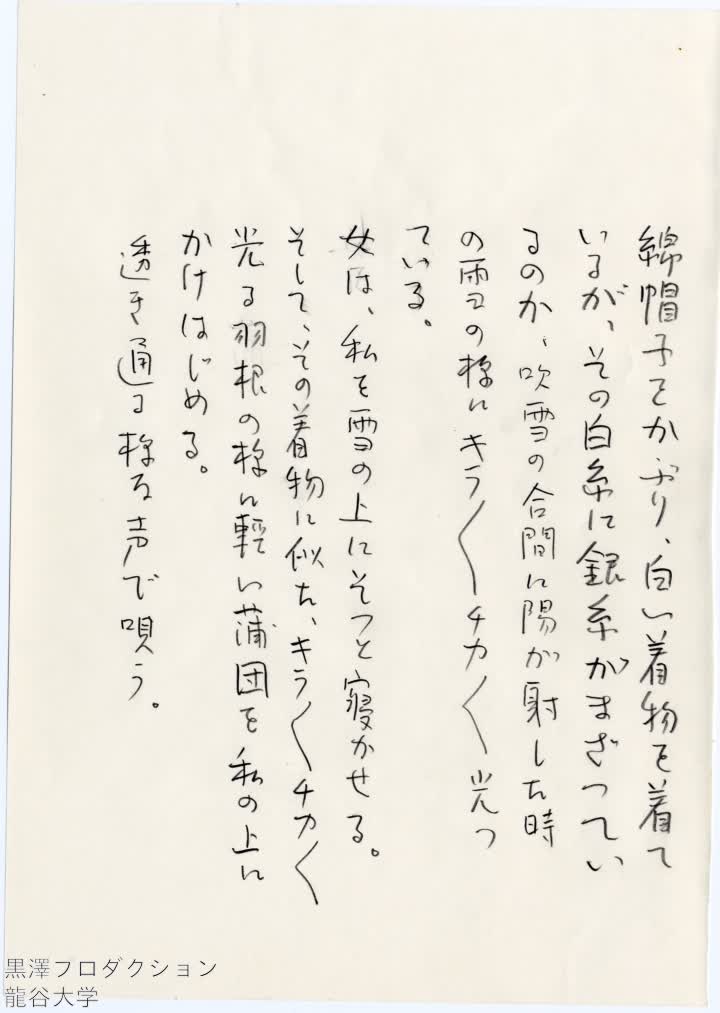 綿帽子をかぶり、白い着物を着て
いるが、その白糸に銀糸がまざってい
るのか、吹雪の合間に陽が射した時
の雪の様にキラ〱チカ〱光っ
ている。
女は、私を雪の上にそっと寝かせる。
そして、その着物に似た、キラ〱チカ〱
光る羽根の様に軽い蒲団を私の上に
かけはじめる。
透き通る様な声で唄う。
黒澤プロダクション
龍谷大学